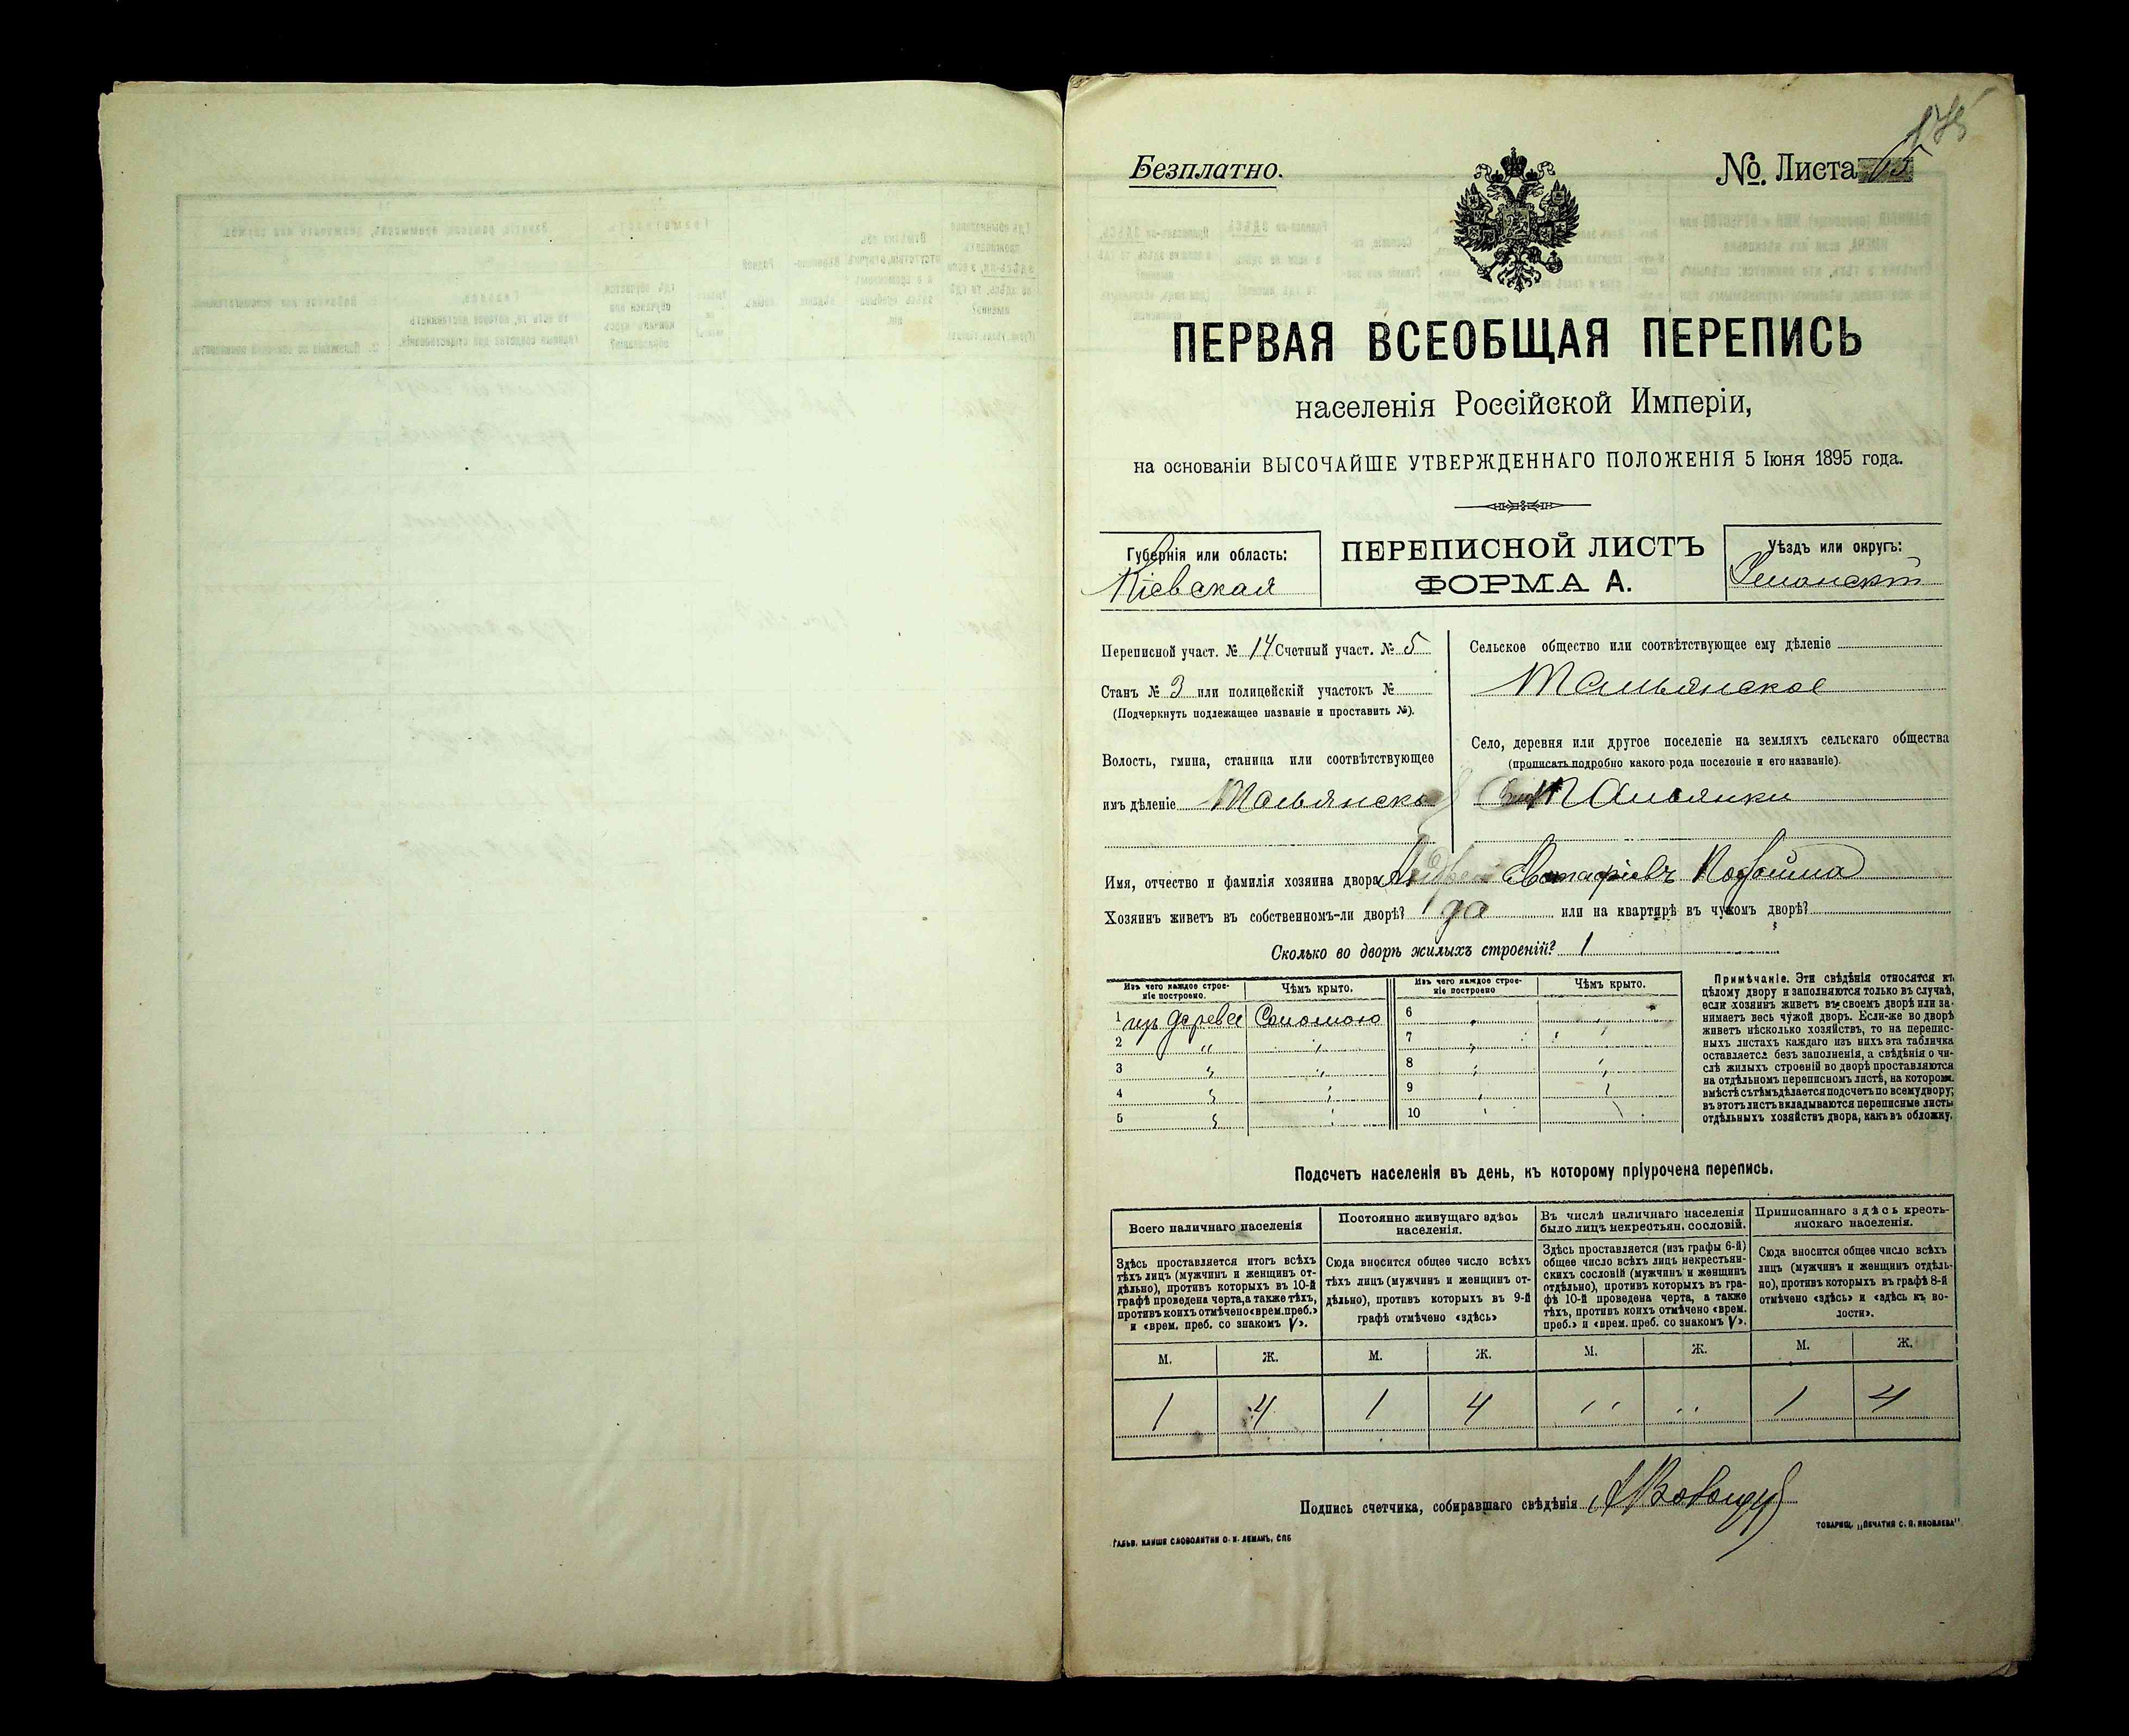 Безплатно.
№ Листа
ПЕРВАЯ ВСЕОБЩАЯ ПЕРЕПИСЬ
населенія Россійской Имперіи,
на основаніи ВЫСОЧАЙШЕ УТВЕРЖДЕННАГО ПОЛОЖЕНІЯ 5 Іюня 1895 года.
Губернія или область:
Кіевская
ПЕРЕПИСНОЙ ЛИСТЪ
ФОРМА А.
Уѣздъ или округъ:
Уманскій
Переписной участ. № 14 Счетный участ. № 5
Станъ № 3 или полицейскій участокъ №
(Подчеркнуть подлежащее названіе и проставить №).
Волость, гмина, станица или соотвѣтствующее
имъ дѣленіе Тальянская
Сельское общество или соотвѣтствующее ему дѣленіе
Тальянское
Село, деревня или другое поселеніе на земляхъ сельскаго общества
(прописать подробно какого рода поселеніе и его названіе).
Тальянки
Имя, отчество и фамилія хозяина двора Андрей Евстафіевъ
Хозяинъ живетъ въ собственномъ-ли дворѣ? да или на квартирѣ въ чужомъ дворѣ?
Сколько во дворѣ жилыхъ строеній? 1
Изъ чего каждое строе-
ніе построено.
Чѣмъ крыто.
Изъ чего каждое строе-
ніе построено
Чѣмъ крыто.
1 изъ дерева Соломою
2 "
3 "
4 "
5 "
6
7
8
9
10
Примѣчаніе. Эти свѣдѣнія относятся къ
цѣлому двору и заполняются только въ случаѣ,
если хозяинъ живетъ въ своемъ дворѣ или за-
нимаетъ весь чужой дворъ. Если-же во дворѣ
живетъ нѣсколько хозяйствъ, то на перепис-
ныхъ листахъ каждаго изъ нихъ эта табличка
оставляется безъ заполненія, а свѣдѣнія о чи-
слѣ жилыхъ строеній во дворѣ проставляются
на отдѣльномъ переписномъ листѣ, на которомъ
вмѣстѣ съ тѣмъ дѣлается подсчетъ по всему двору;
въ этотъ листъ вкладываются переписные листы
отдѣльныхъ хозяйствъ двора, какъ въ обложку.
Подсчетъ населенія въ день, къ которому пріурочена перепись.
Всего наличнаго населенія
Здѣсь проставляется итогъ всѣхъ
тѣхъ лицъ (мужчинъ и женщинъ от-
дѣльно), противъ которыхъ въ 10-й
графѣ проведена черта, а также тѣхъ,
противъ коихъ отмѣчено «врем. преб.»
и «врем. преб. со знакомъ V».
Постоянно живущаго здѣсь
населенія.
Сюда вносится общее число всѣхъ
тѣхъ лицъ (мужчинъ и женщинъ от-
дѣльно), противъ которыхъ въ 9-й
графѣ отмѣчено «здѣсь»
Въ числѣ наличнаго населенія
было лицъ некрестьян. сословій.
Здѣсь проставляется (изъ графы 6-й)
общее число всѣхъ лицъ некрестьян-
скихъ сословій (мужчинъ и женщинъ
отдѣльно), противъ которыхъ въ гра-
фѣ 10-й проведена черта, а также
тѣхъ, противъ коихъ отмѣчено «врем.
преб.» и «врем. преб. со знакомъ V».
Приписаннаго здѣсь кресть-
янскаго населенія.
Сюда вносится общее число всѣхъ
лицъ (мужчинъ и женщинъ отдѣль-
но), противъ которыхъ въ графѣ 8-й
отмѣчено «здѣсь» и «здѣсь къ во-
лости».
М. Ж. М. Ж. М. Ж. М. Ж.
1 4 1 4 " " 1 4
Подпись счетчика, собиравшаго свѣдѣнія
ГАЛЬВ. КЛИШЕ СЛОВОЛИТНИ О. И. ЛЕМАНЪ, СПБ
ТОВАРИЩ. „ПЕЧАТНЯ С. П. ЯКОВЛЕВА"